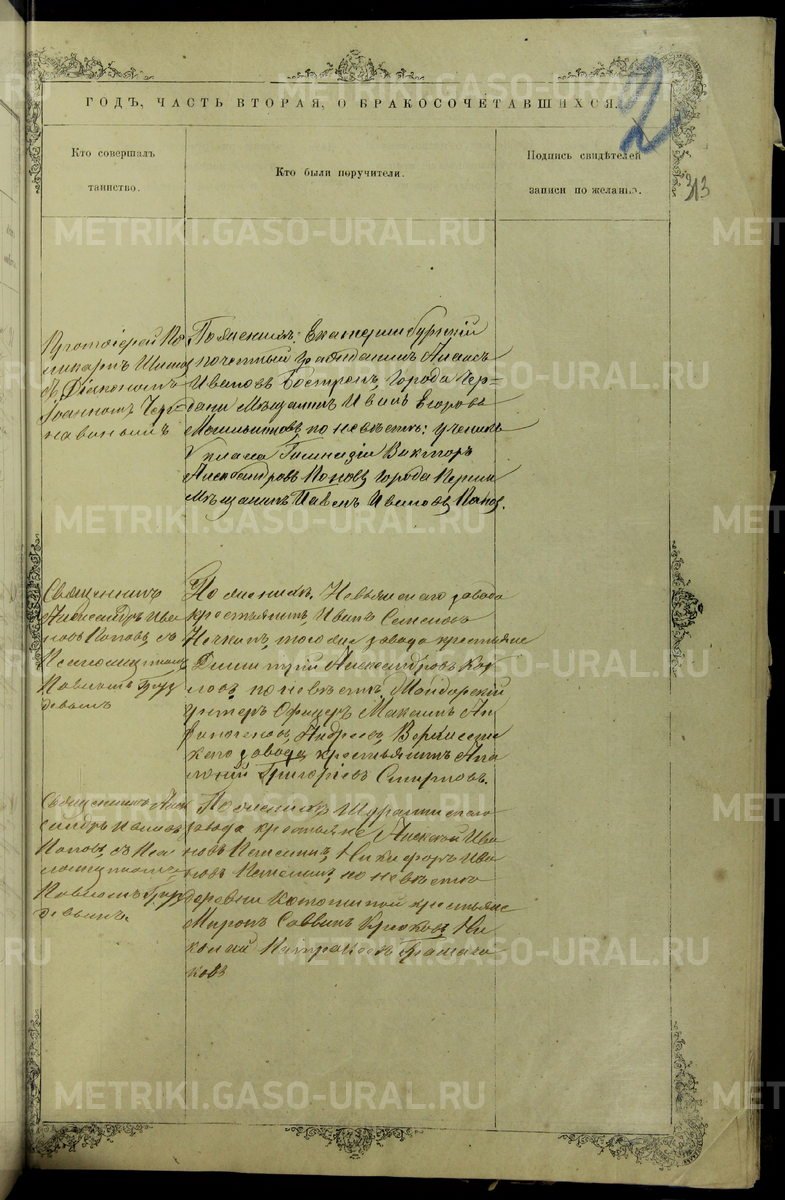 2
313
ГОДЪ, ЧАСТЬ ВТОРАЯ, О БРАКОСОЧЕТАВШИХСЯ.
Кто совершалъ
таинство.
Кто были поручители.
Подпись свидѣтелей
записи по желанію.
Протоіерей По
ликарпъ
съ Діакономъ
Іоанномъ Чер
навинымъ
По женихѣ: Екатеринбургскій
почетный гражданинъ
Ивановъ городъ Чер-
дыни Мѣщанинъ Иванъ Егоровъ
по невѣстѣ: ученикъ
V класса Гимназіи Викторъ
Александровъ Поповъ города Перми
Мѣщанинъ Павелъ Ивановъ Попов.
Священникъ
Александръ Ива
новъ Поповъ, съ
Псаломщикомъ
Павломъ Груз
девымъ
По женихѣ, Невьянскаго завода
крестьянинъ Иванъ Семеновъ
тогоже завода крестьяне
Димитрій Александровъ
ловъ по невѣстѣ,
унтеръ Офицеръ Максимъ
Андреевъ, Верхисетс
каго завода крестьянинъ Апо
лоній Григорьевъ Смирновъ.
Священникъ Алек
сандръ Ивановъ
Поповъ, съ Пса
ломщикомъ
Павломъ Груз
девымъ.
По женихѣ Шуралинскаго
завода крестьяне Алексѣй Ива
новъ Никифоръ Ива
новъ по невѣстѣ
деревни крестьяне
Миронъ Саввинъ Крюковъ Ни
колай
ковъ
METRIKI.GASO-URAL.RU